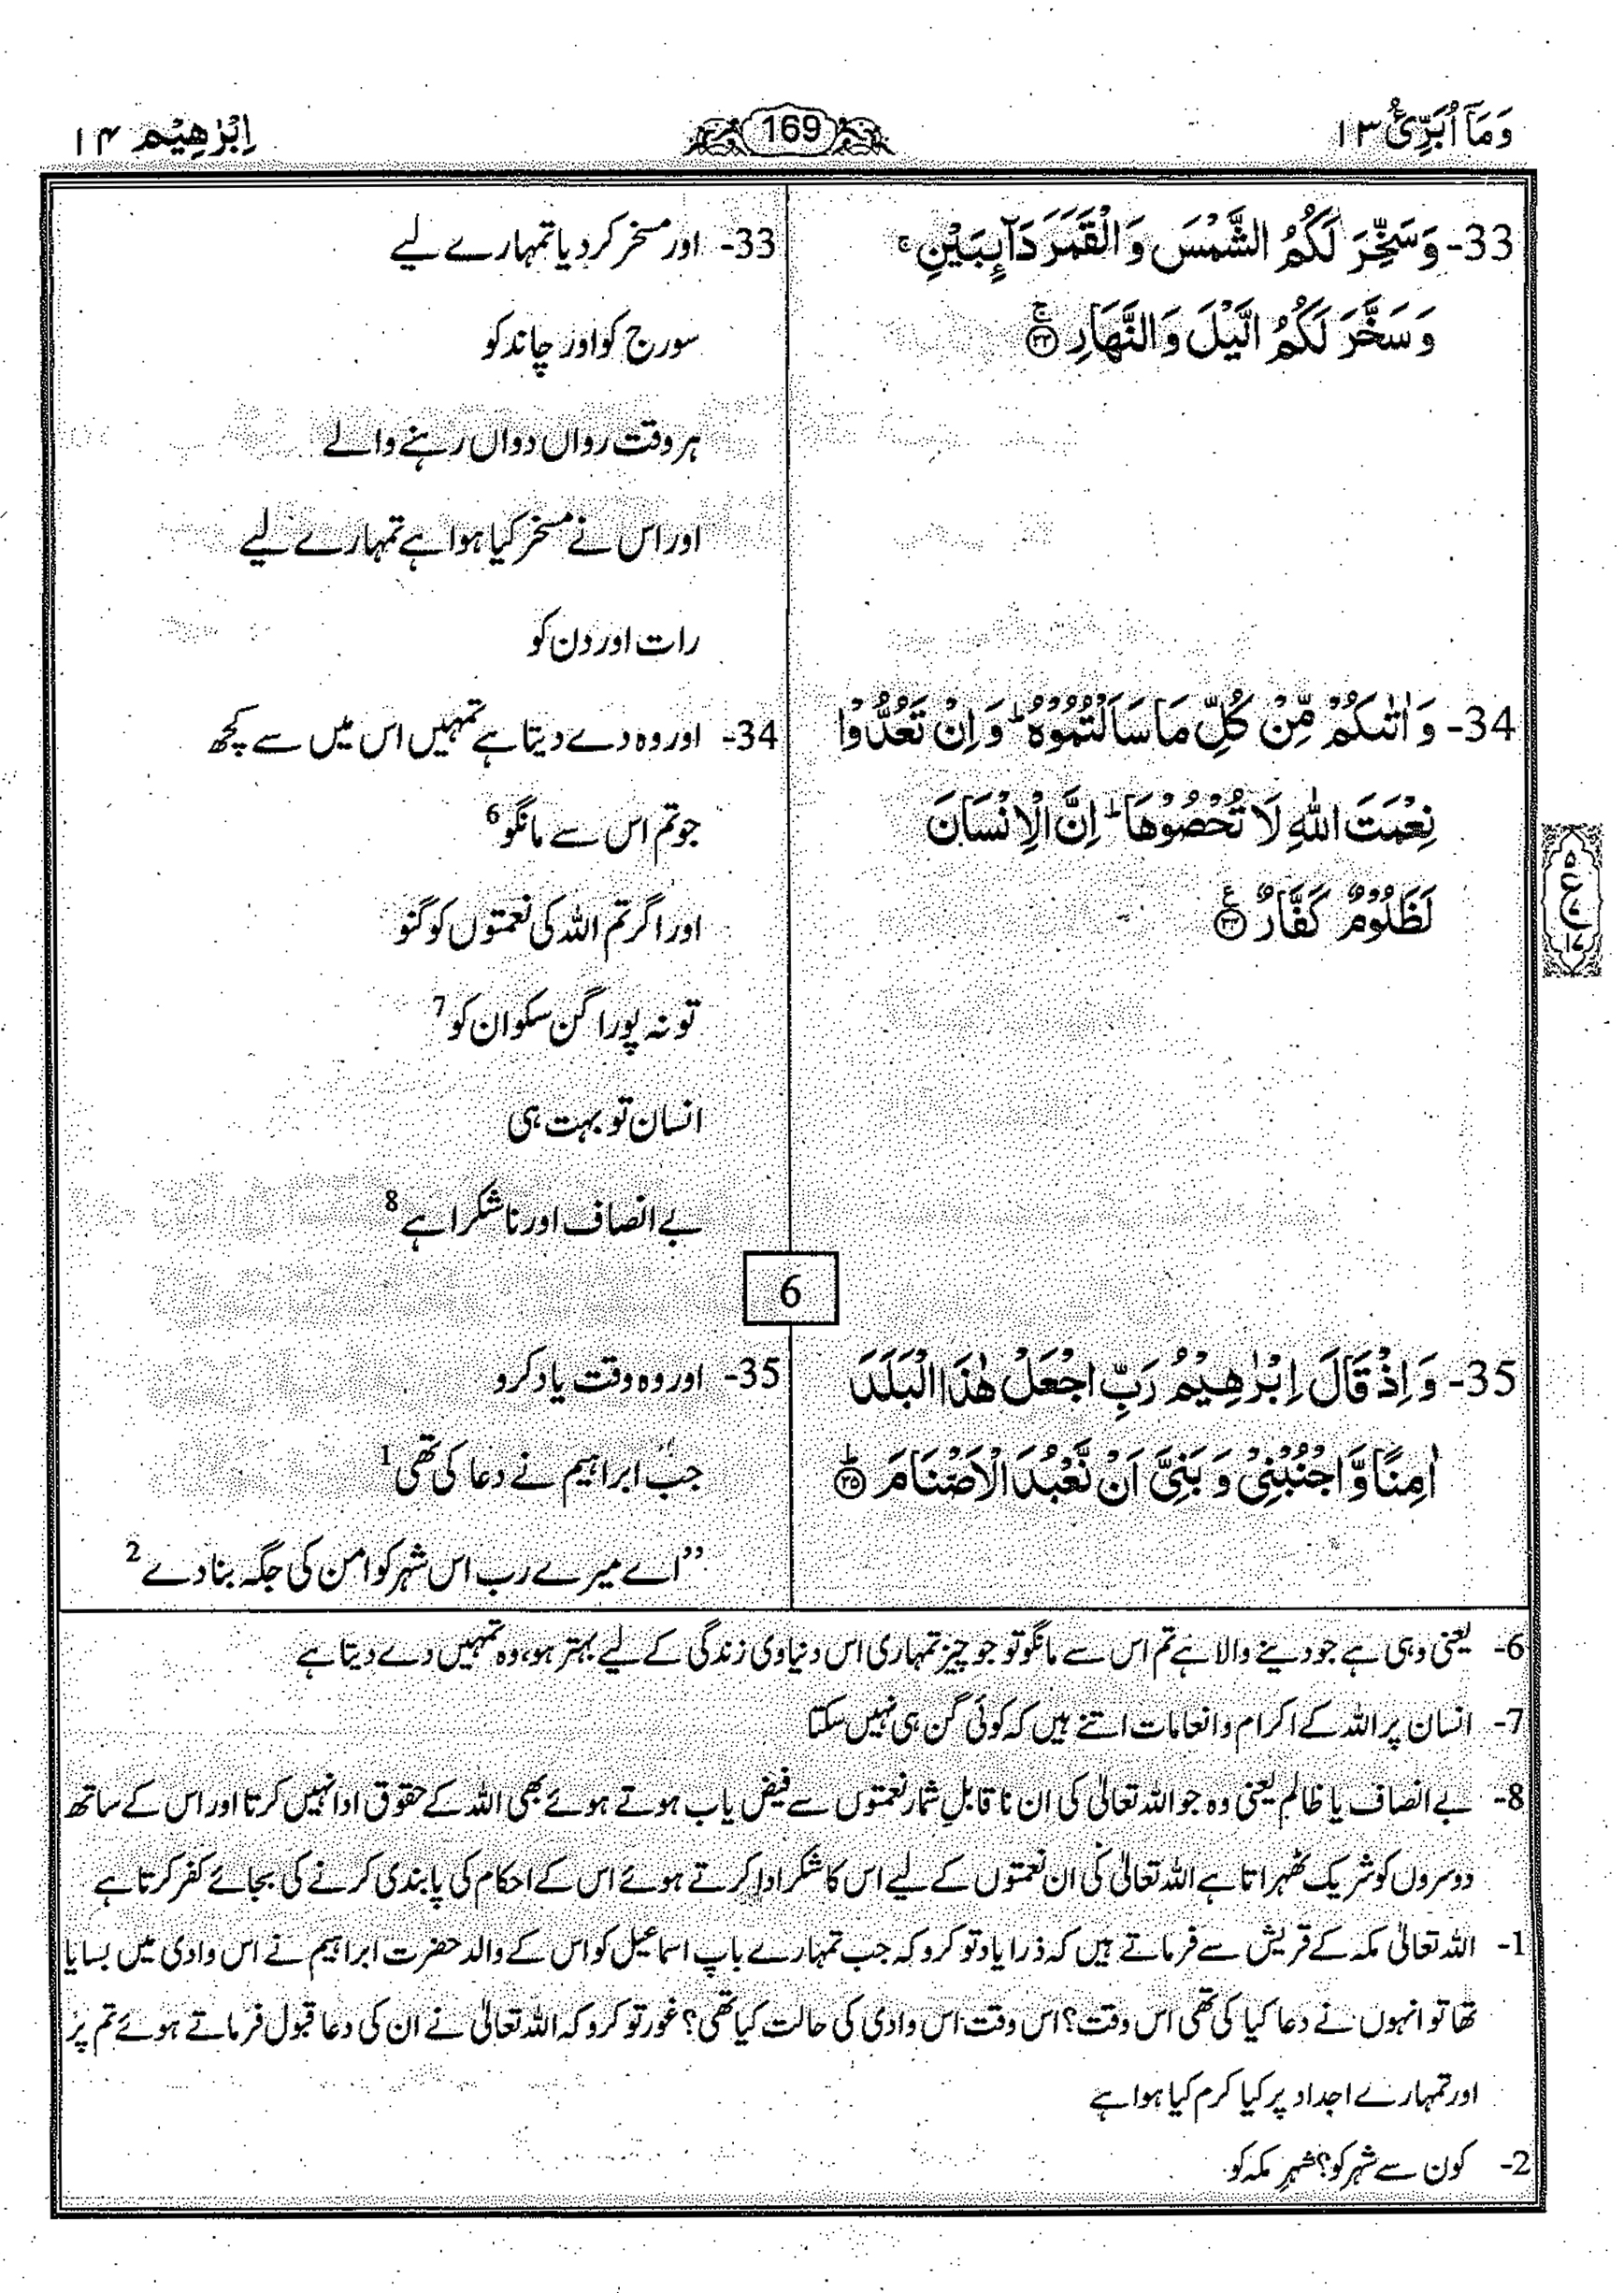 وَمَآ اُبَرِّئُ ۱۳
169
اِبْرٰهِيْم ۱۴
33- وَسَخَّرَ لَكُمُ الشَّمْسَ وَالْقَمَرَ دَآئِبَيْنِ ۚ
وَسَخَّرَ لَكُمُ الَّيْلَ وَالنَّهَارَ ۚ ۳۳
34- وَاٰتٰىكُمْ مِّنْ كُلِّ مَا سَاَلْتُمُوْهُ ؕ وَاِنْ تَعُدُّوْا
نِعْمَتَ اللّٰهِ لَا تُحْصُوْهَا ؕ اِنَّ الْاِنْسَانَ
لَظَلُوْمٌ كَفَّارٌ ۳۴
ع
33- اور مسخر کر دیا تمہارے لیے
سورج کو اور چاند کو
ہر وقت رواں دواں رہنے والے
اور اس نے مسخر کیا ہوا ہے تمہارے لیے
رات اور دن کو
34- اور وہ دے دیتا ہے تمہیں اس میں سے کچھ
جو تم اس سے مانگو 6
اور اگر تم اللہ کی نعمتوں کو گنو
تو نہ پورا گن سکو ان کو 7
انسان تو بہت ہی
بے انصاف اور ناشکرا ہے 8
6
35- وَاِذْ قَالَ اِبْرٰهِيْمُ رَبِّ اجْعَلْ هٰذَا الْبَلَدَ
اٰمِنًا وَّاجْنُبْنِيْ وَبَنِيَّ اَنْ نَّعْبُدَ الْاَصْنَامَ ؕ ۳۵
35- اور وہ وقت یاد کرو
جب ابراہیم نے دعا کی تھی 1
’’اے میرے رب اس شہر کو امن کی جگہ بنا دے 2
6- یعنی وہی ہے جو دینے والا ہے تم اس سے مانگو تو جو چیز تمہاری اس دنیاوی زندگی کے لیے بہتر ہو، وہ تمہیں دے دیتا ہے
7- انسان پر اللہ کے اکرام و انعامات اتنے ہیں کہ کوئی گن ہی نہیں سکتا
8- بے انصاف یا ظالم یعنی وہ جو اللہ تعالیٰ کی ان ناقابلِ شمار نعمتوں سے فیض یاب ہوتے ہوئے بھی اللہ کے حقوق ادا نہیں کرتا اور اس کے ساتھ
دوسروں کو شریک ٹھہراتا ہے اللہ تعالیٰ کی ان نعمتوں کے لیے اس کا شکر ادا کرتے ہوئے اس کے احکام کی پابندی کرنے کی بجائے کفر کرتا ہے
1- اللہ تعالیٰ مکہ کے قریش سے فرماتے ہیں کہ ذرا یاد تو کرو کہ جب تمہارے باپ اسماعیل کو اس کے والد حضرت ابراہیم نے اس وادی میں بسایا
تھا تو انہوں نے دعا کیا کی تھی اس وقت؟ اس وقت اس وادی کی حالت کیا تھی؟ غور تو کرو کہ اللہ تعالیٰ نے ان کی دعا قبول فرماتے ہوئے تم پر
اور تمہارے اجداد پر کیا کرم کیا ہوا ہے
2- کون سے شہر کو؟ شہرِ مکہ کو